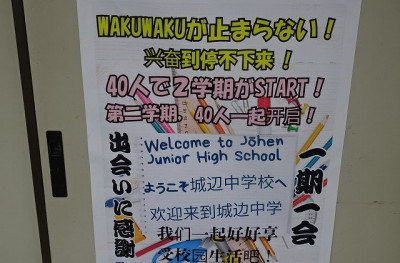 WAKUWAKUが止まらない！
兴奋到停不下来！
40人で２学期がSTART！
第二学期，40人一起开启！
出会いに感謝
Welcome to Johen
Junior High School
ようこそ城辺中学校へ
欢迎来到城边中学
我们一起好好享
受校园生活吧！
一期一会